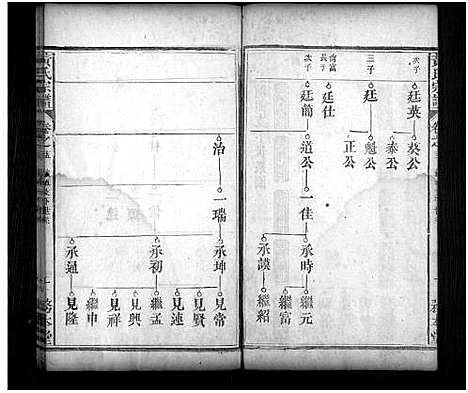 黃氏宗譜
卷之三
次子
廷英
葵公
泰公
三子
廷
魁公
正公
南富
長子
廷仕
次子
廷簡
道公
一佳
承時
繼元
繼富
承謨
繼紹
治
一瑞
承坤
見常
見賢
見連
承初
繼孟
見興
見祥
繼申
承通
見隆
黃氏宗譜
卷之三
務本堂